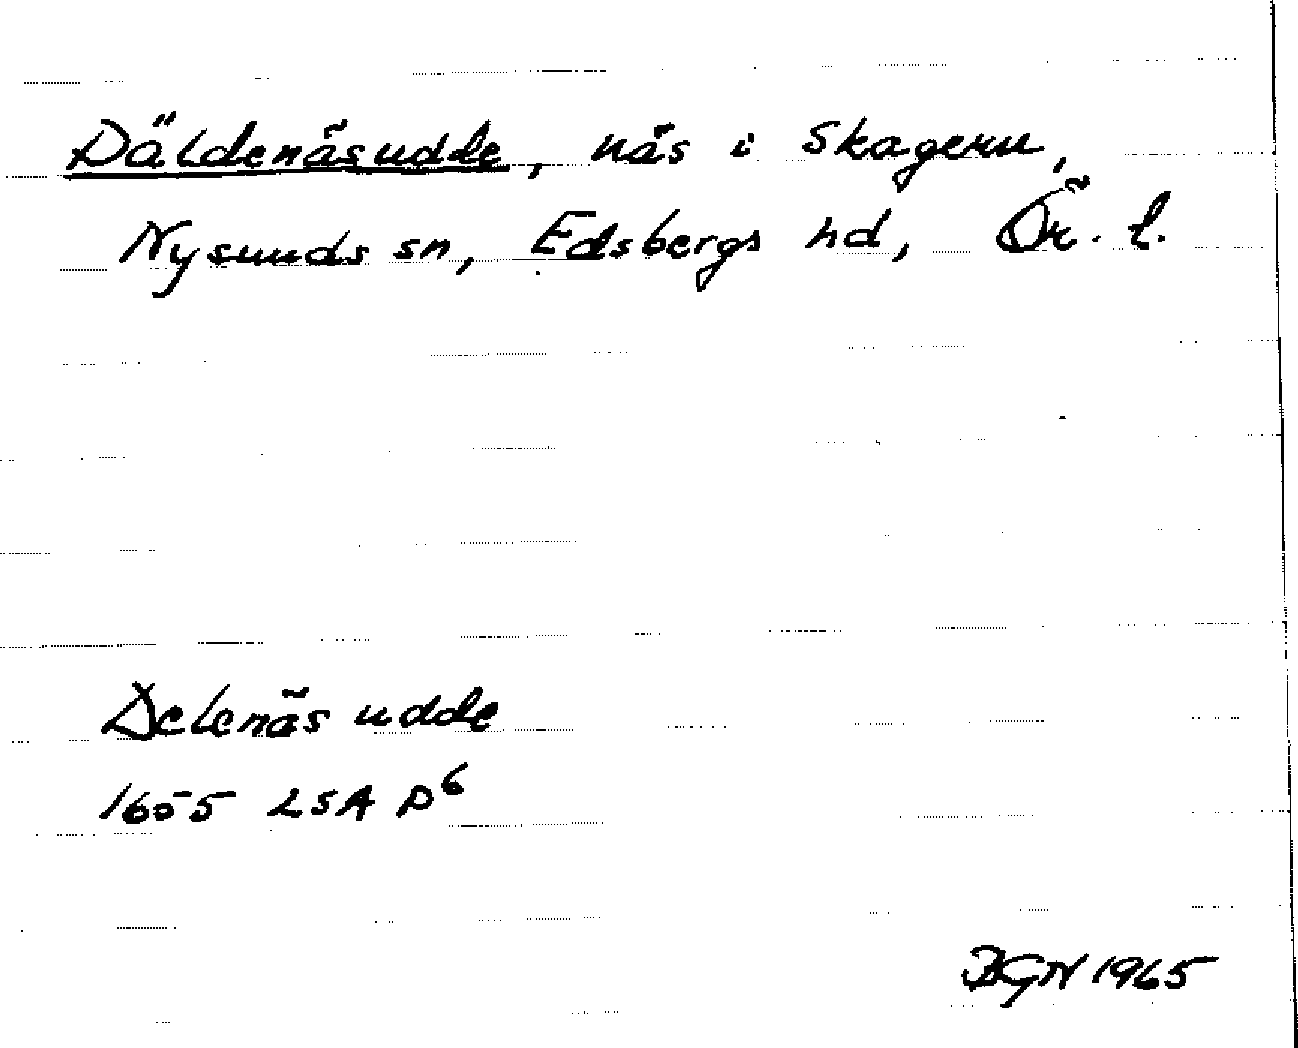 Däldenäsudde, näs i Skagern,
Nysunds sn, Edsbergs hd, Ör. l.
Delenäs udde
1655 LSA D6
BGN 1965